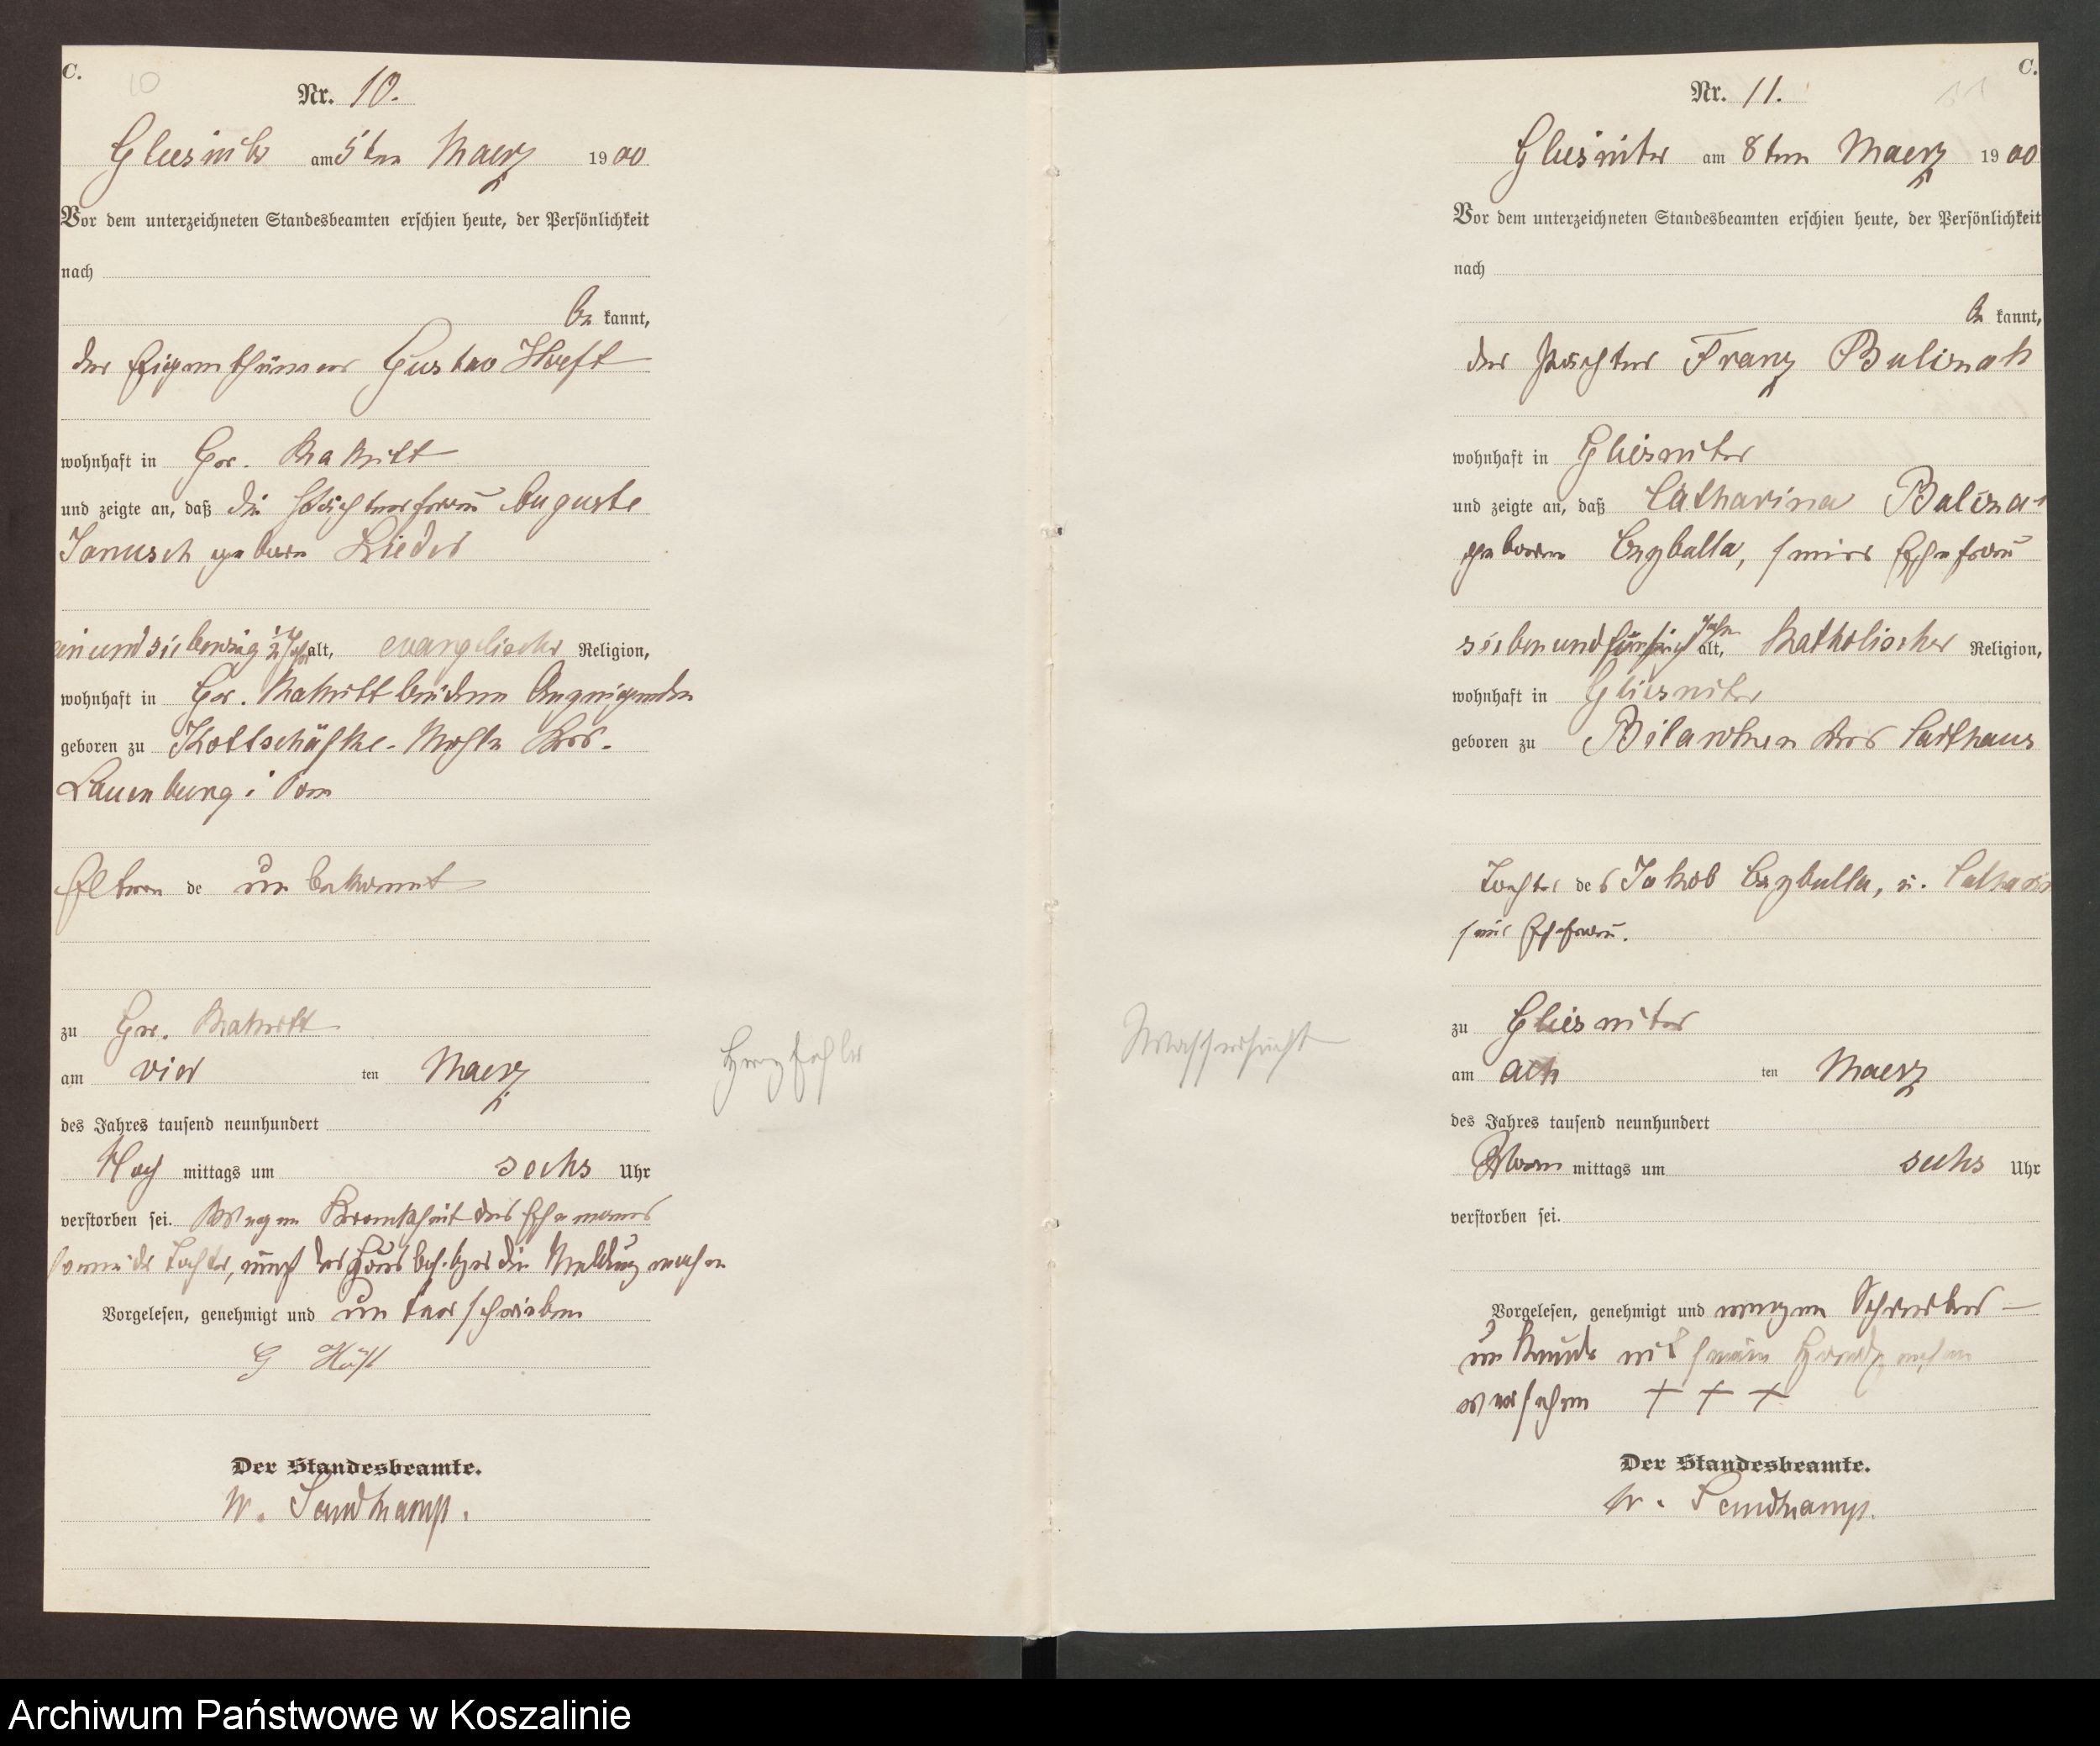 C.
10
Nr. 10.
Gliesnitz am 5ten Maerz 1900
Vor dem unterzeichneten Standesbeamten erschien heute, der Persönlichkeit
nach
be kannt,
der Eigenthümer Gustav Hoeft
wohnhaft in Gr. Rakitt
und zeigte an, daß die Pächterfrau Auguste
Janusch geboren Lieder
einundsiebenzig 1/2 Jahr alt, evangelischer Religion,
wohnhaft in Gr. Rakitt bei dem Anzeigenden
geboren zu Krs.
Lauenburg i Pom
Eltern de unbekannt
zu Gr. Rakitt
am vier ten Maerz
des Jahres tausend neunhundert
Nach mittags um sechs Uhr
verstorben sei. Wegen Krankheit des Ehemanns
sowie der Tochter, muß der Hausbesitzer die Meldung machen
Vorgelesen, genehmigt und unterschrieben
G Höft
Der Standesbeamte.
W. Sandkamp.
Herzfehler
C.
11
Nr. 11.
Gliesnitz am 8ten Maerz 1900
Vor dem unterzeichneten Standesbeamten erschien heute, der Persönlichkeit
nach
be kannt,
der Pächter Franz Balizak
wohnhaft in Gliesnitz
und zeigte an, daß Catharina
geboren Czyballa, seine Ehefrau
siebenundfünfzig Jahr alt, Katholischer Religion,
wohnhaft in Gliesnitz
geboren zu Krs Carthaus
Tochter des Jakob Czyballa, u.
seine Ehefrau.
zu Gliesnitz
am ach ten Maerz
des Jahres tausend neunhundert
Vor mittags um sechs Uhr
verstorben sei.
Wassersucht
Vorgelesen, genehmigt und wegen Schreibens-
unkunde mit seinem Handzeichen
versehen + + +
Der Standesbeamte.
W. Sandkamp.
Archiwum Państwowe w Koszalinie